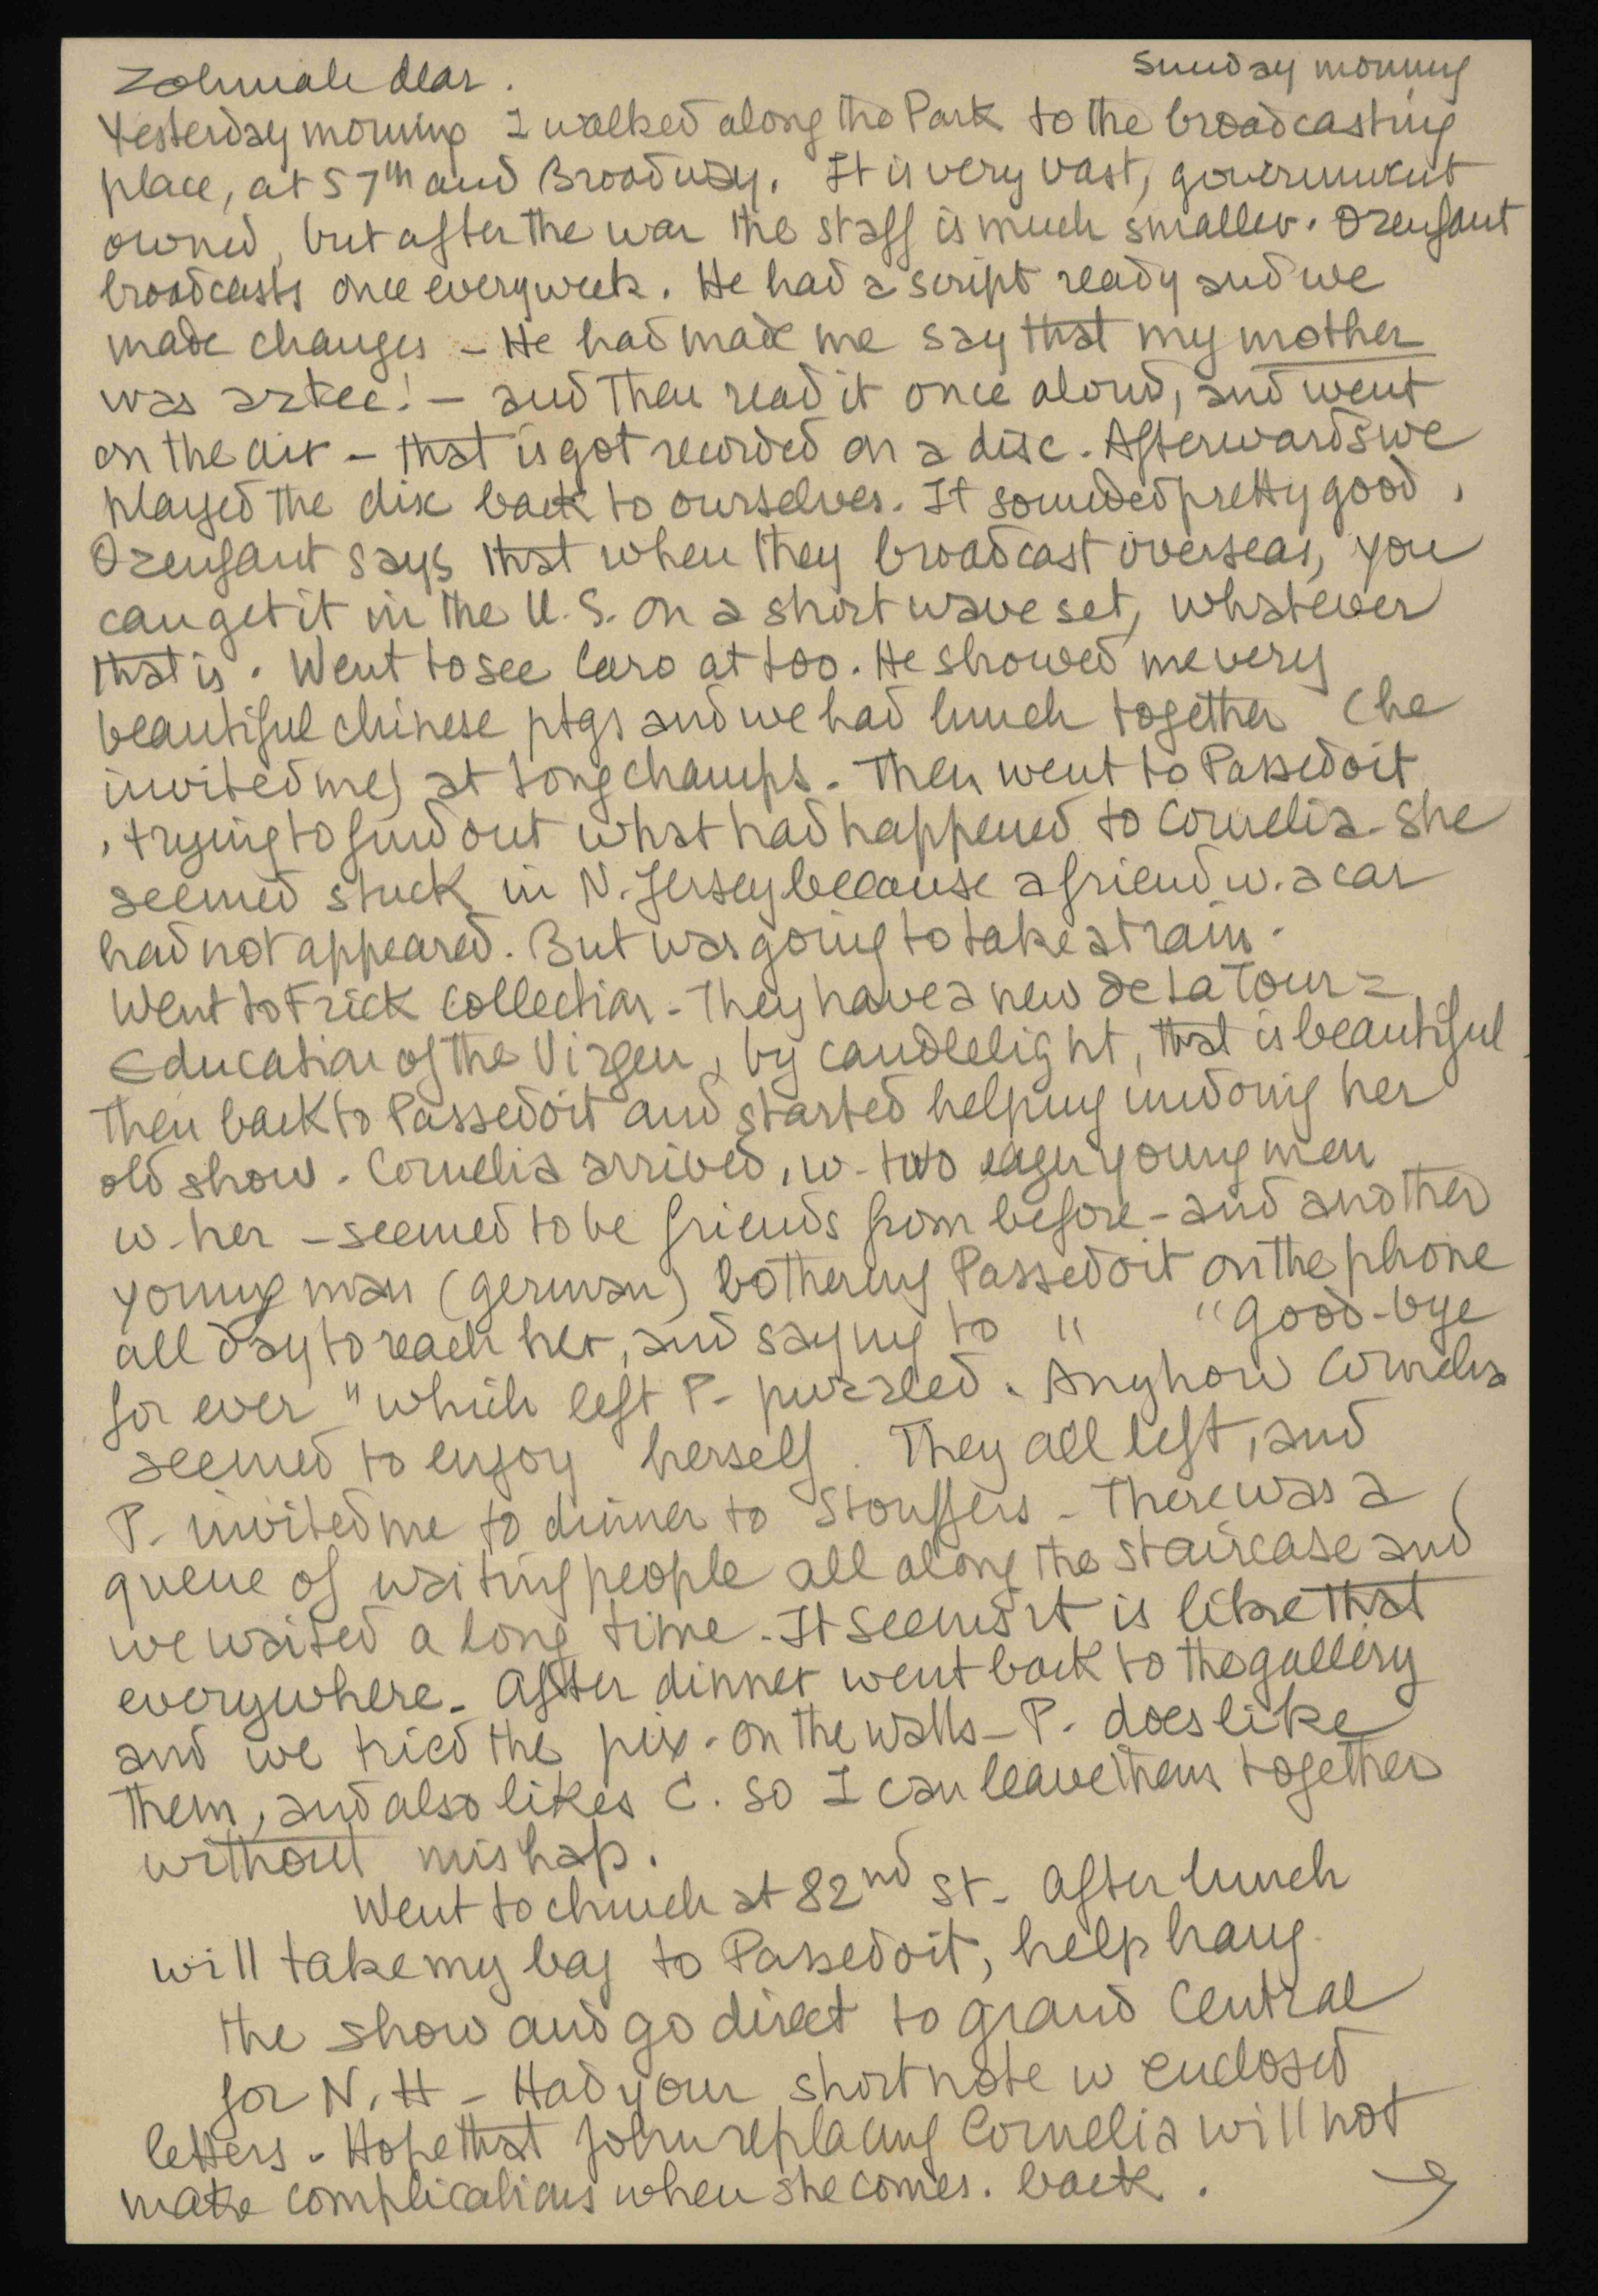 Sunday morning
Zohmah dear.
Yesterday morning I walked along the Park to the broadcasting
place, at 57th and Broadway. It is very vast, government
owned, but after the war the staff is much smaller. Ozenfant
broadcasts once every week. He had a script ready and we
made changes - He had made me say that my mother
was aztec! - and then read it once aloud, and went
on the air - that is got recorded on a disc. Afterwards we
played the disc back to ourselves. It sounded pretty good,
Ozenfant says that when they broadcast overseas, you
can get it in the U.S. on a short wave set, whatever
that is. Went to see Caro at too. He showed me very
beautiful chinese ptgs and we had lunch together (he
invited me) at Longchamps. Then went to Passedoit
, trying to find out what had happened to Cornelia - she
seemed stuck in N. Jersey because a friend w. a car
had not appeared. But was going to take a train.
Went to Frick Collection - They have a new de La Tour =
Education of the Virgen, by candlelight, that is beautiful.
Then back to Passedoit and started helping undoing her
old show. Cornelia arrived, w- two eager young men
w- her - seemed to be friends from before - and another
young man (german) bothering Passedoit on the phone
all day to reach her, and saying to " "good-bye
for ever" which left P- puzzled. Anyhow Cornelia
seemed to enjoy herself. They all left, and
P- invited me to dinner to Stouffers - There was a
queue of waiting people all along the staircase and
we waited a long time - It seems it is like that
everywhere. After dinner went back to the gallery
and we tried the pix. on the walls - P. does like
them, and also likes C. so I can leave them together
without mishap.
Went to church at 82nd St - After lunch
will take my bag to Passedoit, help hang
the show and go direct to Grand Central
for N.H - Had your short note w enclosed
letters. Hope that John replacing Cornelia will not
make complications when she comes. back.